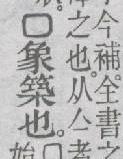 今補。全書之
之也。从亼。者
□象築也。
始□